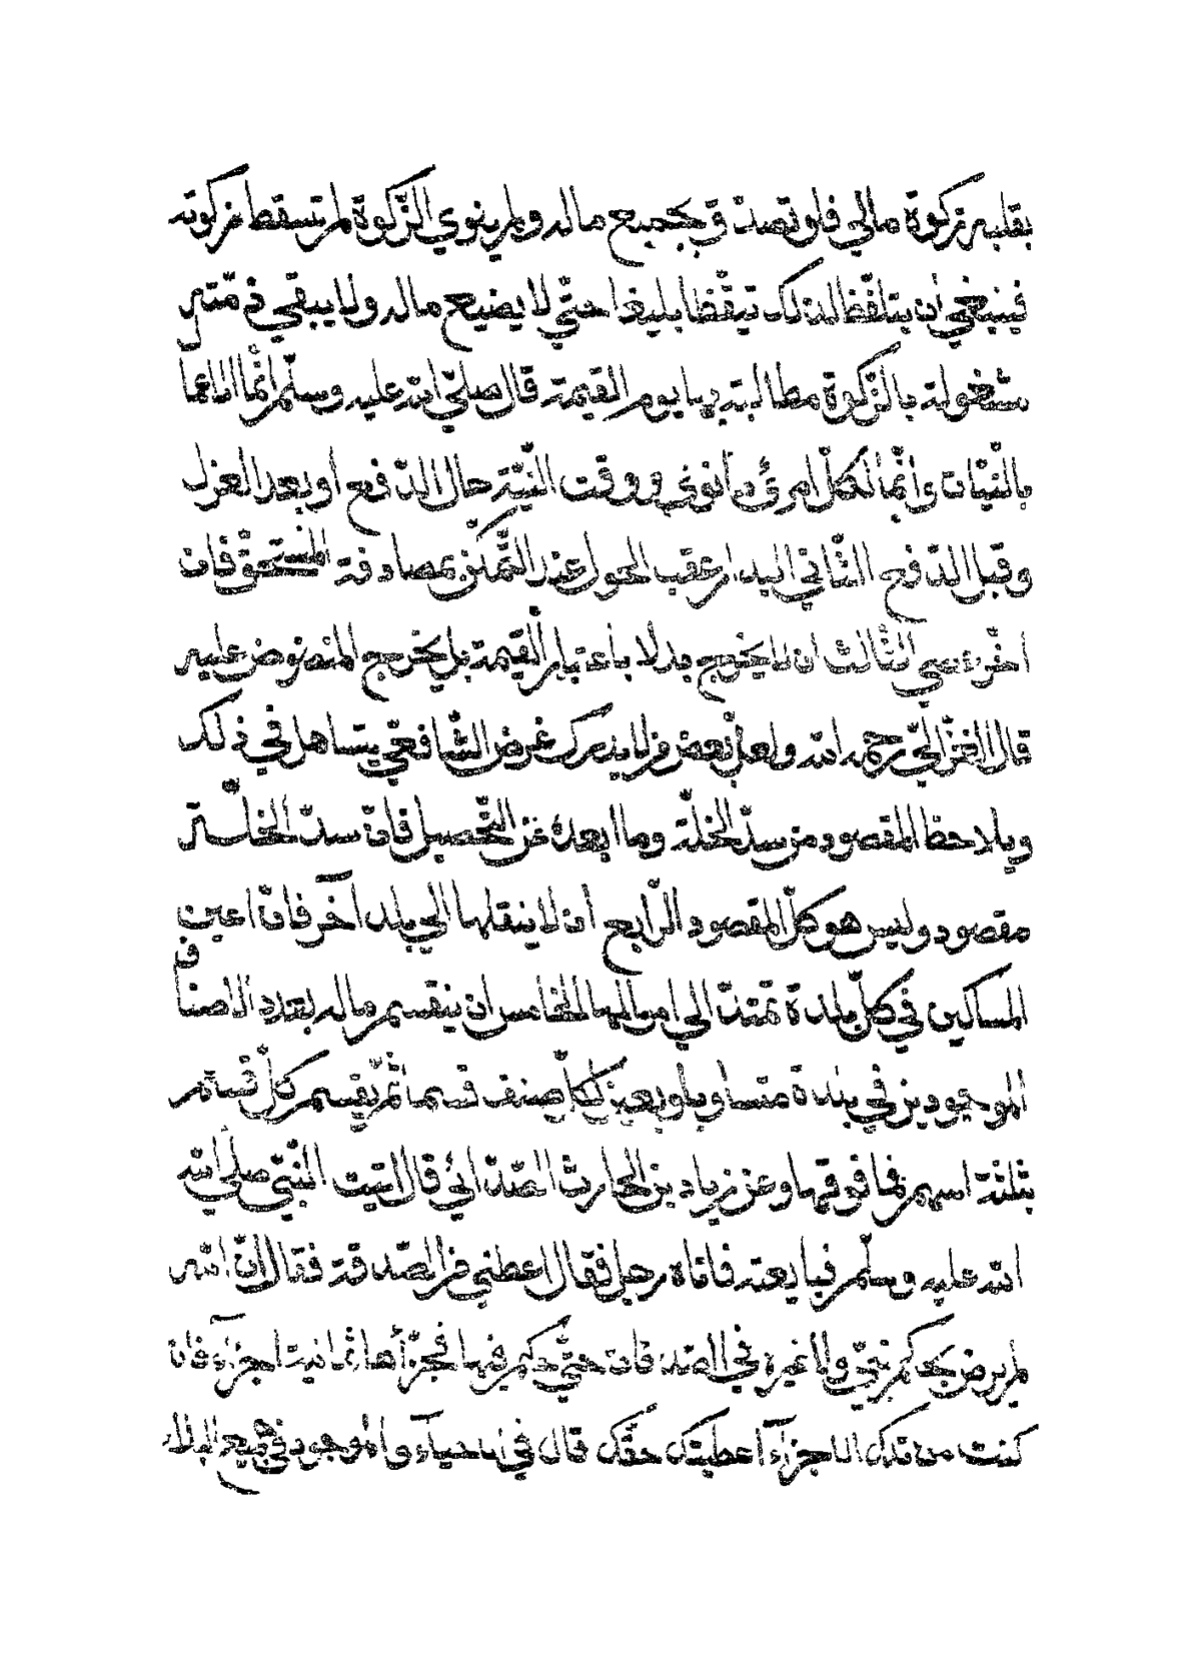 بقلبه زكوة مالي فلو تصدّق بجميع ماله ولم ينوي الزّكوة لم تسقط زكوته
فينبغي ان يتلفّظ لذلك تيقّظا بليغا حتّي لا يضيع ماله ولا يبقي ذمّته
مشغولة بالزّكوة مطالبته بها يوم القيمة قال صلّي الله عليه وسلّم انّما الاعما
بالنّيّات وانّما لكلّ امرئ ما نوي ووقت النّيّة حال الدّفع او بعد العزل
وقبل الدّفع الثّاني البدار عقب الحول عند التّمكّن بمصادفة المستحقّ فان
اخّر عصي الثّالث ان لا يخرج بدلا باعتبار القيمة بل يخرج المنصوص عليه
قال الغزّالي رحمه الله ولعلّ بعض من لا يدرك غرض الشّافعّي يتساهل في ذلك
ويلاحظ المقصود من سدّ الخلّة وما ابعده عن التّحصيل فانّ سدّ الخلّة
مقصود وليس هو كلّ المقصود الرّابع أن لا ينقلها الي بلد آخر فانّ اعين
المساكين في كلّ بلدة تمتدّ الي اموالها الخامس ان يقسم ماله بعدد الاصناف
الموجودين في بلدة متساويا ويعين لكلّ صنف قسما ثمّ يقسم كلّ قسم
بثلثة اسهم فما فوقها وعن زياد بن الحارث الصّدّائي قال اتيت النّبّي صلي الله
الله عليه وسلّم فبايعته فاتاه رجل فقال اعطني من الصّدقة فقال انّ الله
لم يرض بحكم نبّي ولا غيره في الصّدقات حتّي حكم فيها فجزّأها ثمانية اجزآء فان
كنت من تلك الاجزآء اعطيتك حقّك قال في الاحيآء والموجود في جميع البلاد